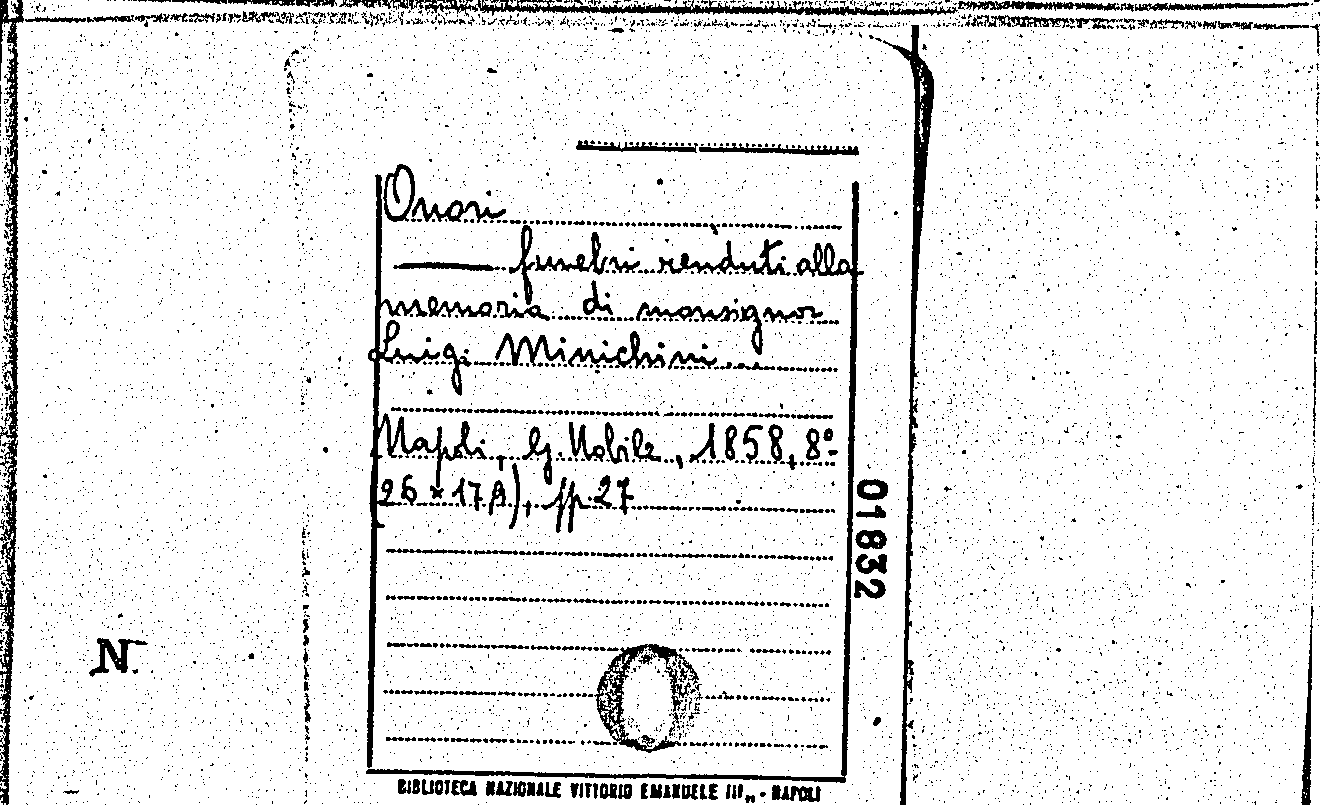 Onori
——— funebri renduti alla
memoria di monsignor
Luigi Minichini...
Napoli, G. Nobile, 1858, 8º-
(26 × 17), pp. 27
01832
N.
BIBLIOTECA NAZIONALE VITTORIO EMANUELE III„ - NAPOLI